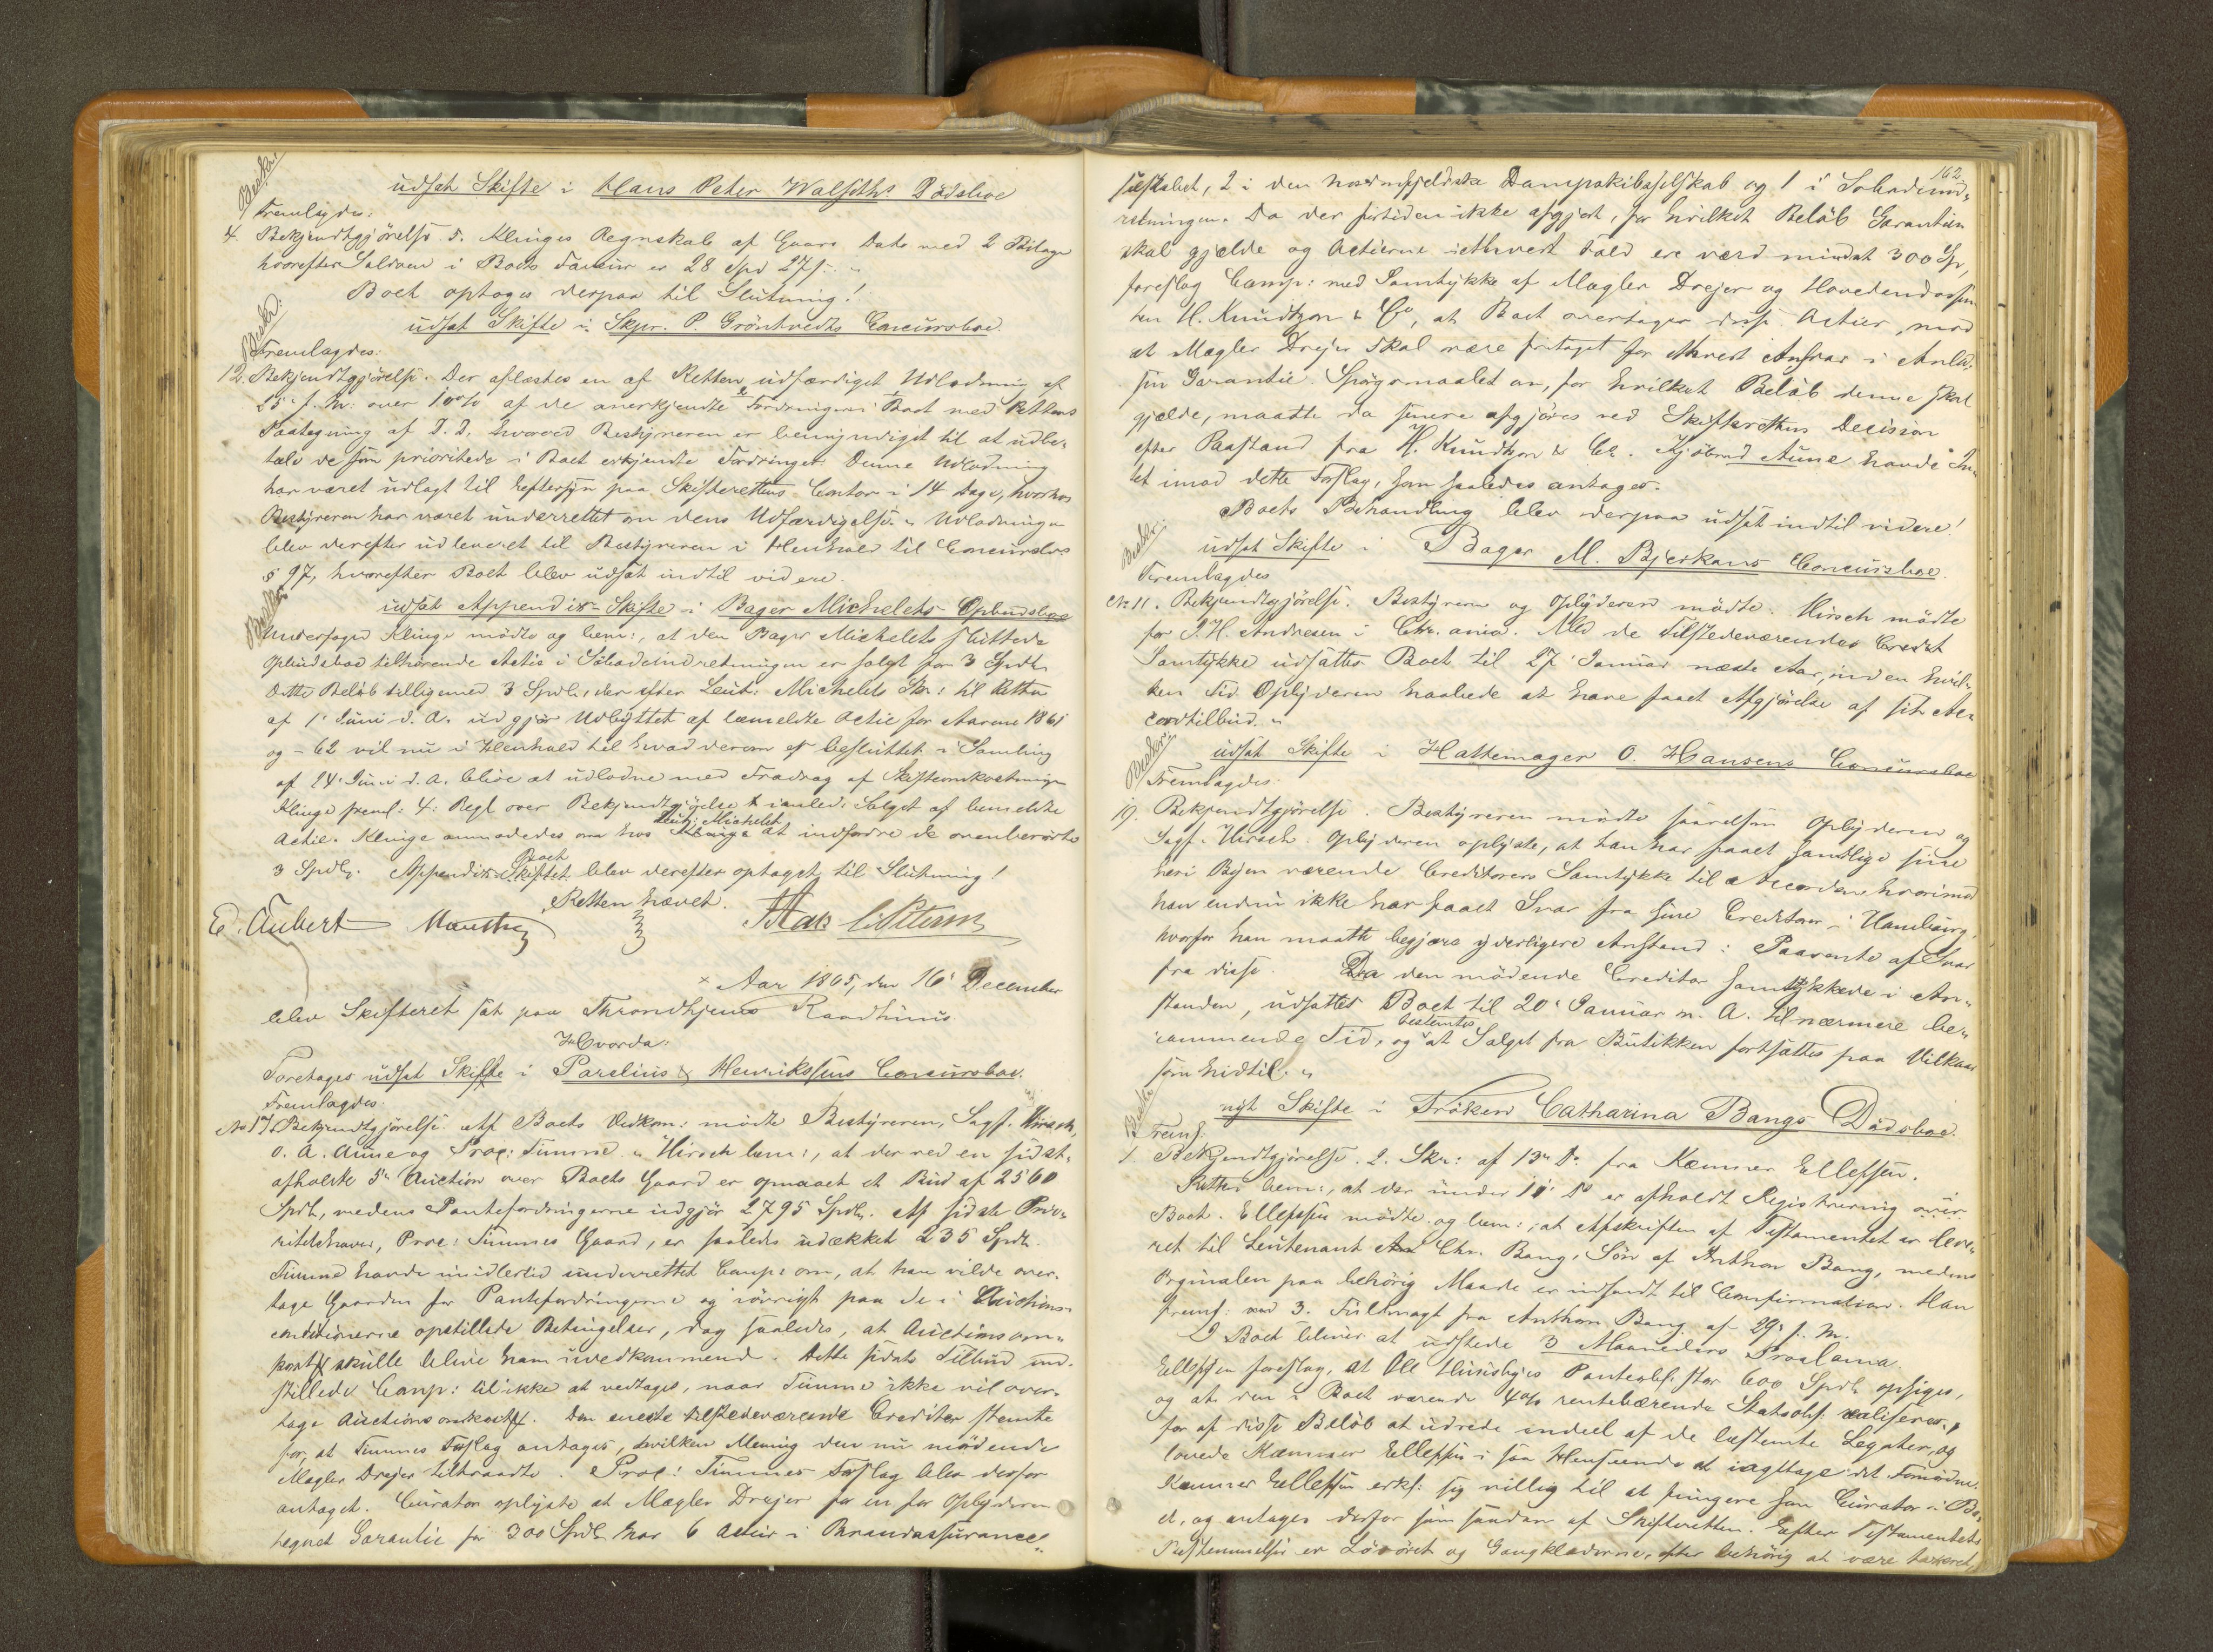 Besktr.
udsat Skifte i Hans Peter Walseths Dödsboe
Fremlagdes:
4. Bekjendtgjörelse. 5. Klinges Regnskab af Gaars Dato med 2 Bilage
hvorefter Saldoen i Boets Faveur er 28 Spd 27 s.
Boet optoges derpaa til Slutning!
Besktr.
udsat Skifte i Skpr. P. Gröntvedts Concursboe.
Fremlagdes:
12. Bekjendtgjörelse. Der oplæstes en af Retten udfærdiget Udlodning af
25' f. M. over 10% af de anerkjendte Fordringer i Boet med Rettens
Paategning af D. D. hvorved Bestyreren er bemyndiget til at udbe-
tale de som prioritede i Boet erkjendte Fordringer. Denne Udlodning
har været udlagt til Eftersyn paa Skifterettens Contor i 14 Dage, hvorhos
Bestyreren har været underrettet om dens Udfærdigelse. Udlodningen
blev derefter udleveret til Bestyreren i Henhold til Concurslov
§ 97, hvorefter Boet blev udsat indtil videre.
Besktr.
udsat Appendix-Skifte i Bager Michelets Opbudsboe
Undersøged Klinge mödte og bem:, at den Bager Michelets sluttede
Opbudsboe tilhörende Actie i Söbadeindretningen er solgt for 3 Spdlr
Dette Belöb tilligemed 3 Spdlr, der efter Leut: Michelets Skr: til Retten
af 1' Juni d. A. udgjör Udbyttet af bemeldte Actie for Aarene 1861
og - 62 vil nu i Henhold til hvad derom er besluttet i Samling
af 24' Juni d. A. blive at udlodne med Fradrag af Skifteomkostninger
Klinge freml: 4: Regl over Bekjendtgjörelse i anled. Salget af bemeldte
Leut: Michelet
Actie. Klinge anmodedes om hos Klinge at indfordre de ovenberörte
Boet
3 Spdlr. Appendix-Skiftet blev derefter optaget til Slutning!
Retten hævet.
E. Aubert
Aar 1865, den 16' December
blev Skifteret sat paa Throndhjems Raadhuus.
Hvorda:
Foretages udsat Skifte i Parelius & Henrikssens Concursboe.
Fremlagdes.
No 17. Bekjendtgjörelse. Af Boets Vedkom: mödte Bestyreren, Sagf. Hirsch,
O. A. Aune og Proc: Timme. Hirsch bem:, at der ved en sidst-
afholdt 5te Auction over Boets Gaard er opnaaet et Bud af 2560
Spdlr, medens Pantefordringerne udgjör 2795 Spdlr. Af sidste Prio-
ritetshaver, Proc: Timmes Gaard, er saaledes udækket 235 Spdlr.
Timme havde imidlertid underrettet Comp: om, at han vilde over-
tage Gaarden for Pantefordringerne og iövrigt paa de i Auctions-
conditionerne opstillede Betingelser, dog saaledes, at Auctionsom-
kostn skulle blive ham uvedkommende. Dette sidste Tilbud ind-
stillede Comp: til ikke at vedtages, naar Timme ikke vil over-
tage Auctionsomkostn. Den eneste tilstedeværende Creditor stemte
for, at Timmes Forslag antages, hvilken Mening den nu mödende
Mægler Drejer tiltraadte. Proc: Timmes Forslag blev derfor
antaget. Curator oplyste at Mægler Drejer for en for Opbyderen
tegnet Garantie for 300 Spdlr har 6 Actier i Brandassurance-
162.
selskabet, 2 i den nordenfjeldske Dampskibsselskab og 1 i Sobadeind-
retningen. Da der fortiden ikke afgjort, for hvilket Belöb Garantien
skal gjælde og Actierne iethvert Fald ere værd mindst 300 Sp,
foreslog Comp: med Samtykke af Mægler Drejer og Hovedendossen-
ten H. Knudtzon & Co, at Boet overtager disse Actier, mod
at Mægler Drejer skal være fritaget for ethvert Ansvar i Anled.
sin Garantie. Spörgsmaalet om, for hvilket Belöb denne skal
gjælde, maatte da senere afgjöres ved Skifterettens Decision
efter Paastand fra H. Knudtzon & Co. Kjöbmd Aune havde In-
tet imod dette Forslag, som saaledes antages.
Boets Behandling blev derpaa udsat indtil videre!
Besktr.
udsat Skifte i Bager M. Bjerkans Concursboe.
Fremlagdes
No 11. Bekjendtgjörelse. Bestyreren og Opbyderen mödte. Hirsch mödte
for J. H. Andresen i Chr.ania. Med de Tilstedeværendes Credit
Samtykke udsattes Boet til 27' Januar næste Aar, inden hvil-
ken Tid Opbyderen haabede at have faaet Afgjörelse af sit Ac-
cordtilbud.
Besktr.
udsat Skifte i Hattemager O. Hansens Concursboe
Fremlagdes
19. Bekjendtgjörelse. Bestyreren mödte saavelsom Opbyderen og
Sagf. Hirsch. Opbyderen oplyste, at han har faaet samtlige sine
heri Byen værende Creditorers Samtykke til Accorden hvorimod
han endnu ikke har faaet Svar fra sine Creditorer i Hamburg
hvorfor han maatte begjære yderligere Anstand i Paavente af Svar
fra disse. Da den mödende Creditor samtykkede i An-
standen, udsattes Boet til 20' Januar n. A. til nærmere be-
bestemtes
rammende Tid, og at Salget fra Butikken fortsattes paa Vilkaar
som hidtil.
Besktr.
nyt Skifte i Fröken Catharina Bangs Dödsboe.
Freml.
1 Bekjendtgjörelse. 2. Skr: af 13de Ds fra Kæmner Ellefsen.
Retten bem:, at der under 11' Ds er afholdt Registrering over
Boet. Ellefsen mödte og bem:, at Afskriften af Testamentet er leve-
ret til Leutenant Chr. Bang, Sön af Anthon Bang, medens
Orginalen paa behörig Maade er indsendt til Confirmation. Han
freml: ved 3. Fuldmagt fra Anthon Bang af 29' f. M.
I Boet bliver at udstede 3 Maaneders Proclama.
Ellefsen foreslog, at Ole Huusbyes Panteobl. stor 600 Spdlr opsiges,
og at den i Boet værende 4% rentebærende Statsobl. realiseres,
for af disse Belöb at udrede endeel af de bestemte Legater, og
lovede Kæmner Ellefsen i saa Henseende at iagttage det Fornödne.
Kæmner Ellefsen erkl: sig villig til at fungere som Curator i Bo-
et, og antages derfor som saadan af Skifteretten. Efter Testamentets
Bestemmelser er Lösöret og Gangklæderne, efter behörig at være taxeret,